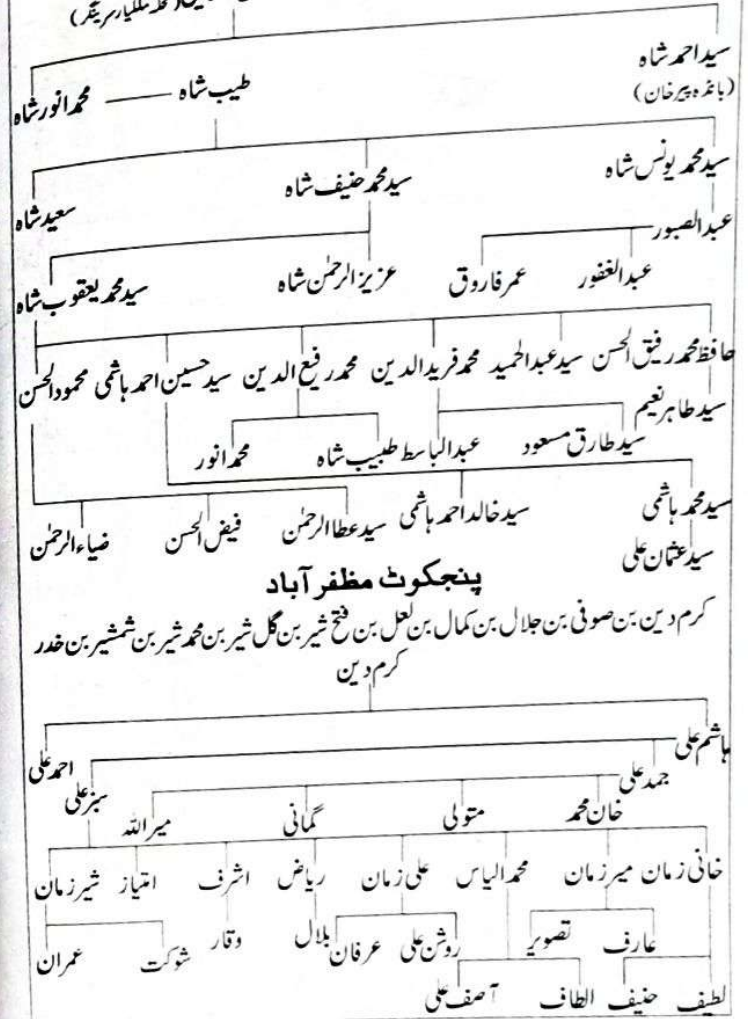 (محلہ ملکیار سرینگر)
سید احمد شاہ
(بانڈہ پیر خان)
طیب شاہ
محمد انور شاہ
سید محمد یونس شاہ
سید محمد حنیف شاہ
سعید شاہ
عبدالصبور
عبدالغفور
عمر فاروق
عزیز الرحمٰن شاہ
سید محمد یعقوب شاہ
حافظ محمد رفیق الحسن سید عبدالحمید محمد فرید الدین محمد رفیع الدین سید حسین احمد ہاشمی محمود الحسن
سید طاہر نعیم
سید طارق مسعود
عبدالباسط طبیب شاہ
محمد انور
سید محمد ہاشمی
سید خالد احمد ہاشمی
سید عطا الرحمٰن
فیض الحسن
ضیاء الرحمٰن
سید عثمان علی
پنجکوٹ مظفر آباد
کرم دین بن صوفی بن جلال بن کمال بن لعل بن فتح شیر بن گل شیر بن محمد شیر بن شمشیر بن خدر
کرم دین
ہاشم علی
احمد علی
جمد علی
سبز علی
خان محمد
متولی
گمانی
میر اللہ
خانی زمان میر زمان محمد الیاس علی زمان ریاض اشرف امتیاز شیر زمان
عارف
تصویر
روشن علی
عرفان
بلال
وقار
شوکت
عمران
لطیف
حنیف
الطاف
آصف علی